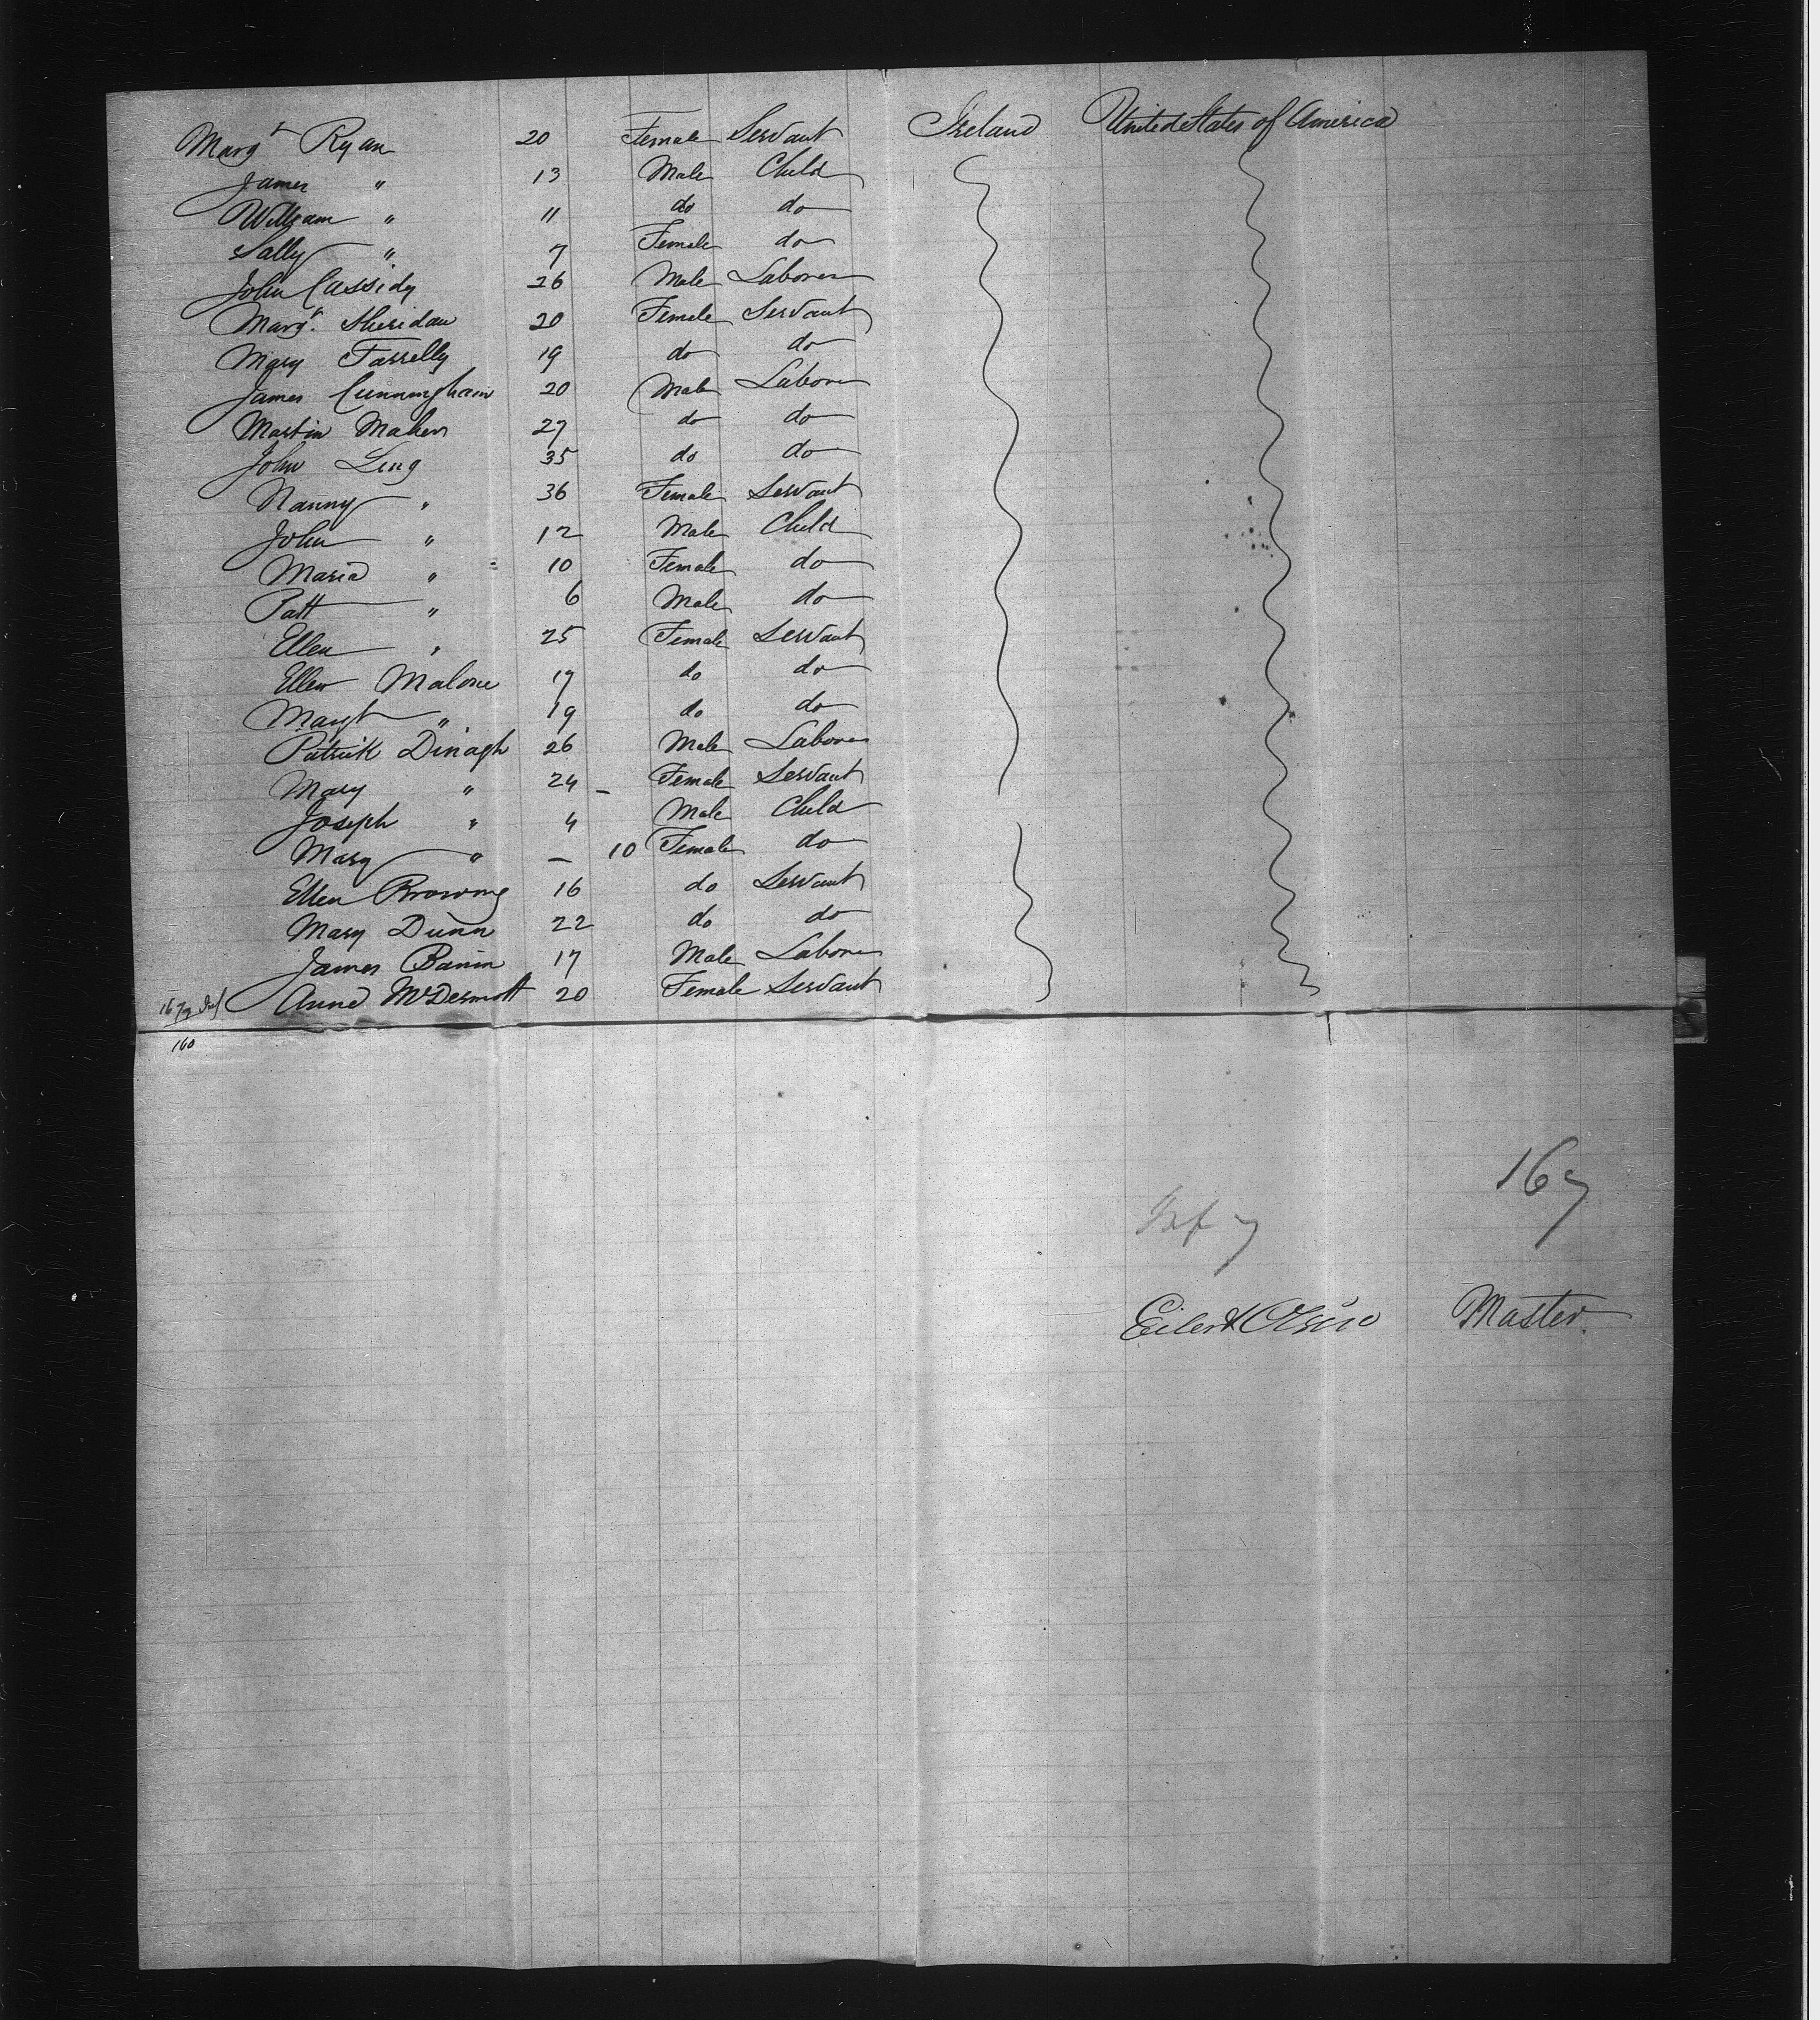 Margt Ryan 20 Female Servant Ireland United States of America
James " 13 Male Child
William " 11 do do
Sally " 7 Female do
John Cassidy 26 Male Laborer
Margt. Sheridan 20 Female Servant
Mary Farrelly 19 do do
James Cunningham 20 Male Laborer
Martin Maher 27 do do
John Ling 35 do do
Nanny " 36 Female Servant
John " 12 Male Child
Maria " 10 Female do
Patt " 6 Male do
Ellen " 25 Female Servant
Ellen Malone 17 do do
Margt " 19 do do
Patrick Dinagh 26 Male Laborer
Mary " 24 – Female Servant
Joseph " 4 Male Child
Mary " – 10 Female do
Ellen Browne 16 do Servant
Mary Dunn 22 do do
James Banin 17 Male Laborer
Anne McDermott 20 Female Servant
160
167
Inf 7
Eilert Olsen Master.